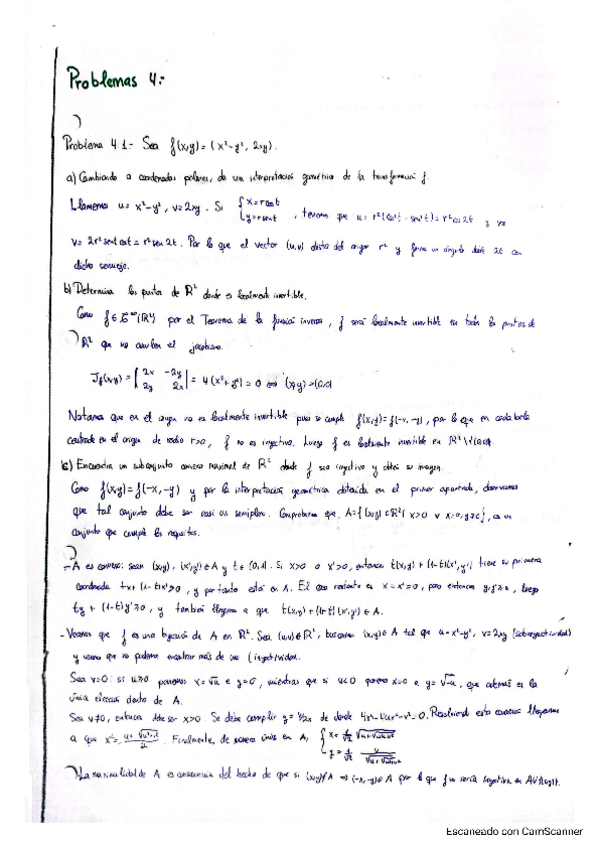 Problemas 4:-
Problema 4.1:- Sea f(x,y) = (x²-y², 2xy).
a) Cambiando a coordenadas polares, da una interpretación geométrica de la transformación f.
Llamemos u = x²-y², v = 2xy. Si { x = r cos t y = r sen t , tenemos que u = r²(cos²t - sen²t) = r² cos 2t y
v = 2r² sen t cos t = r² sen 2t. Por lo que el vector (u,v) dista del origen r² y forma un ángulo 2t con
dicho semieje.
b) Determina los puntos de R² donde es localmente invertible.
Como f ∈ C^∞(R²) por el Teorema de la función inversa, f será localmente invertible en todos los puntos de
R² que no anulen el jacobiano.
Jf(x,y) = | 2x -2y 2y 2x | = 4(x²+y²) = 0 ⇔ (x,y) = (0,0)
Notamos que en el origen no es localmente invertible pues se cumple f(x,y) = f(-x,-y), por lo que en cada bola
centrada en el origen de radio r>0, f no es inyectiva. Luego f es localmente invertible en R²\{(0,0)}.
c) Encuentra un subconjunto conexo maximal de R² donde f sea inyectiva y determina su imagen.
Como f(x,y) = f(-x,-y) y por la interpretación geométrica obtenida en el primer apartado, observamos
que tal conjunto debe ser casi un semiplano. Comprobemos que A = {(x,y) ∈ R² | x>0 ∨ x=0, y≥0}, es un
conjunto que cumple los requisitos.
- A es convexo: sean (x,y), (x',y') ∈ A y t ∈ [0,1]. Si x>0 o x'>0, entonces t(x,y) + (1-t)(x',y') tiene su primera
coordenada tx + (1-t)x' > 0, y por tanto está en A. El caso restante es x = x' = 0, pero entonces y,y' ≥ 0, luego
ty + (1-t)y' ≥ 0, y también llegamos a que t(x,y) + (1-t)(x',y') ∈ A.
- Veamos que f es una biyección de A en R². Sea (u,v) ∈ R², buscamos (x,y) ∈ A tal que u = x²-y², v = 2xy (sobreyectividad)
y veamos que no podemos encontrar más de uno (inyectividad).
Sea v=0: si u≥0 ponemos x = √u e y = 0, mientras que si u<0 ponemos x=0 e y = √-u, que además es la
única elección dentro de A.
Sea v≠0, entonces debe ser x>0. Se debe cumplir y = v/2x de donde 4x⁴-4ux²-v² = 0. Resolviendo esta ecuación llegamos
a que x² = (u+√(u²+v²))/2. Finalmente, de manera única en A, { x = 1/√2 √(u+√(u²+v²)) y = 1/√2 v/√(u+√(u²+v²))
La maximalidad de A es consecuencia del hecho de que si (x,y) ∉ A ⇒ (-x,-y) ∈ A por lo que f no sería inyectiva en
Escaneado con CamScanner